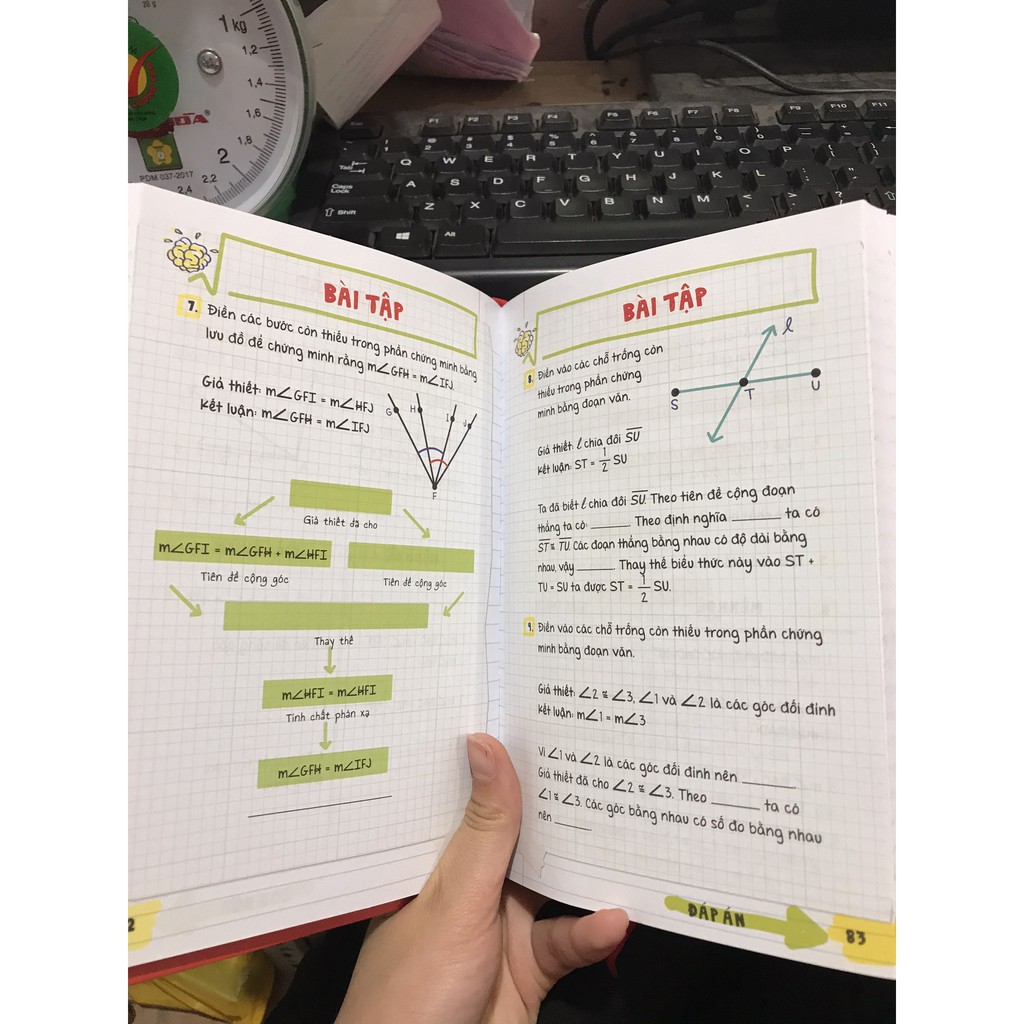 20 g
1kg
1,2
1,4
1,6
1,8
2
2,2
2,4
PDM 037-2017
F1 F2 F3 F4 F5 F6 F7 F8 F9 F10 F11
Tab Q W E R T Y U I O P
Caps Lock A S D F G H J K L
Shift Z X C V B N M
Alt
BÀI TẬP
7. Điền các bước còn thiếu trong phần chứng minh bằng
lưu đồ để chứng minh rằng m∠GFH = m∠IFJ.
Giả thiết: m∠GFI = m∠HFJ
Kết luận: m∠GFH = m∠IFJ
G H I J
F
Giả thiết đã cho
m∠GFI = m∠GFH + m∠HFI
Tiên đề cộng góc
Tiên đề cộng góc
Thay thế
m∠HFI = m∠HFI
Tính chất phản xạ
m∠GFH = m∠IFJ
2
BÀI TẬP
8. Điền vào các chỗ trống còn
thiếu trong phần chứng
minh bằng đoạn văn.
ℓ
S T U
Giả thiết: ℓ chia đôi S̅U̅
Kết luận: ST = 1/2 SU
Ta đã biết ℓ chia đôi S̅U̅. Theo tiên đề cộng đoạn
thẳng ta có ______. Theo định nghĩa ______ ta có
S̅T̅ ≅ T̅U̅. Các đoạn thẳng bằng nhau có độ dài bằng
nhau, vậy ______. Thay thế biểu thức này vào ST +
TU = SU ta được ST = 1/2 SU.
9. Điền vào các chỗ trống còn thiếu trong phần chứng
minh bằng đoạn văn.
Giả thiết: ∠2 ≅ ∠3, ∠1 và ∠2 là các góc đối đỉnh
Kết luận: m∠1 = m∠3
Vì ∠1 và ∠2 là các góc đối đỉnh nên ______
Giả thiết đã cho ∠2 ≅ ∠3. Theo ______ ta có
∠1 ≅ ∠3. Các góc bằng nhau có số đo bằng nhau
nên ______
ĐÁP ÁN
83